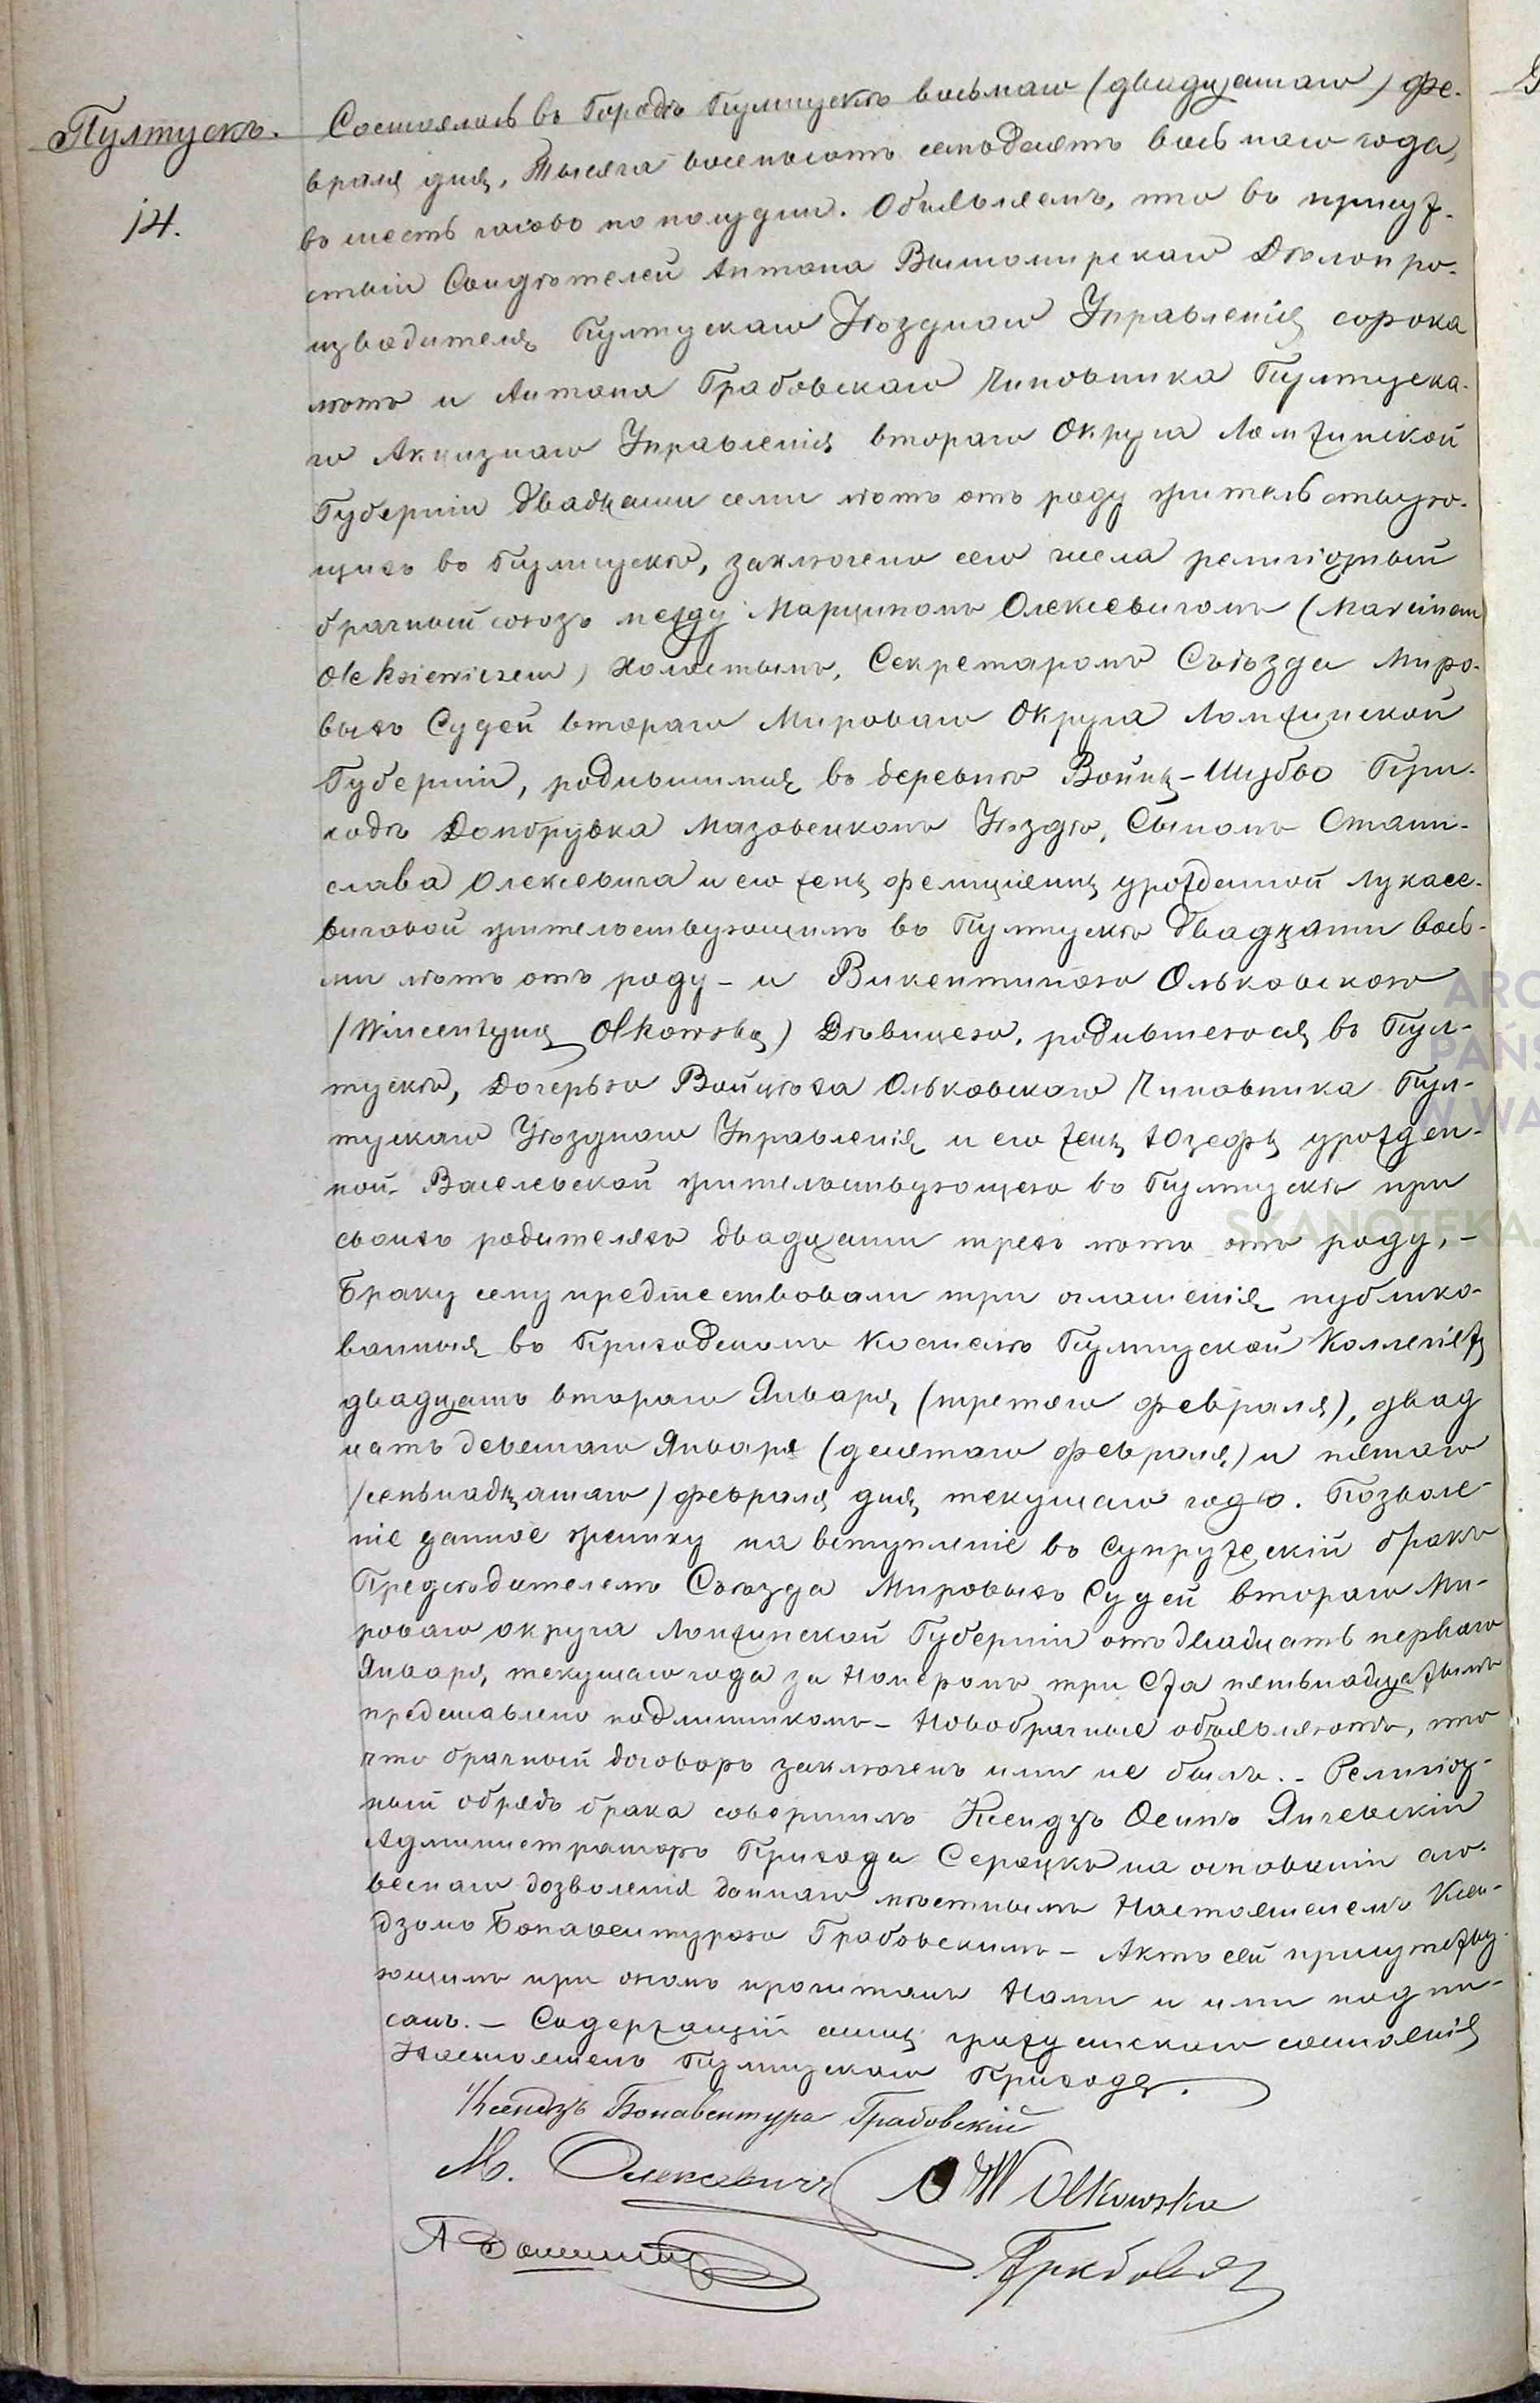 Пултускъ.
14.
Состоялось въ Городѣ Пултускѣ восьмаго (двадцатаго) Фе-
враля дня, Тысяча восемьсотъ семьдесятъ восьмаго года,
въ шесть часовъ по полудни. Объявляемъ, что въ присут-
ствіи Свидѣтелей Антона Делопро-
изводителя Пултускаго Уѣзднаго Управленія сорока
лѣтъ и Антона Грабовскаго Чиновника Пултуска-
го Акцизнаго Управленія втораго Округа Ломжинской
Губерніи двадцати семи лѣтъ отъ роду жительствую-
щихъ въ Пултускѣ, заключенъ сего числа религіозный
брачный союзъ между Марциномъ Олексевичомъ (Marcinem
Oleksiewiczem) Холостымъ, Секретаромъ Съѣзда Миро-
выхъ Судей втораго Мироваго Округа Ломжинской
Губерніи, родившимся въ деревнѣ Войны-Шубы При-
ходѣ Домбрувка Мазовецкомъ Уѣздѣ, Сыномъ Стани-
слава Олексевича и его жены Фелиціяны урожденной Лукасе-
вичовой жительствующимъ въ Пултускѣ двадцати вось-
ми лѣтъ отъ роду - и Викентиною Ольковскою
(Wincentyną Olkowską) Дѣвицею, родившеюся въ Пул-
тускѣ, Дочерью Войцѣха Ольковскаго Чиновника Пул-
тускаго Уѣзднаго Управленія и его жены Юзефы урожден-
ной жительствующею въ Пултускѣ при
своихъ родителяхъ двадцати трехъ лѣтъ отъ роду, -
Браку сему предшествовали три оглашенія публико-
ванныя въ Приходскомъ Костелѣ Пултуской Коллегіеты
двадцать втораго Января (третяго февраля), двад
цать девятаго Января (десятаго февраля) и пятаго
(семьнадцатаго) февраля дня текущаго года. Позволе-
ніе данное жениху на вступленіе въ Супружескій бракъ
Предсѣдателемъ Съѣзда Мировыхъ Судей втораго Ми-
роваго округа Ломжинской Губерніи отъ двадцать перваго
Января, текущаго года за Номеромъ три ста пятьнадцатымъ
представлено подлинникомъ - Новобрачные объявляютъ, что
что брачный договоръ заключенъ ими не былъ. - Религіоз-
ный обрядъ брака совершилъ Ксендзъ Осипъ Янчевскій
Администраторъ Прихода Сероцкъ на основаніи сло-
веснаго дозволенія даннаго мѣстнымъ Настоятелемъ Ксен-
дзомъ Бонавентурою Грабовскимъ - Актъ сей присутству-
ющимъ при ономъ прочитанъ Нами и ими подпи-
санъ. - Содержащій акты гражданскаго состоянія
Настоятель Пултускаго Прихода.
Ксендзъ Бонавентура Грабовскій
М. Олексевичъ W Olkowska